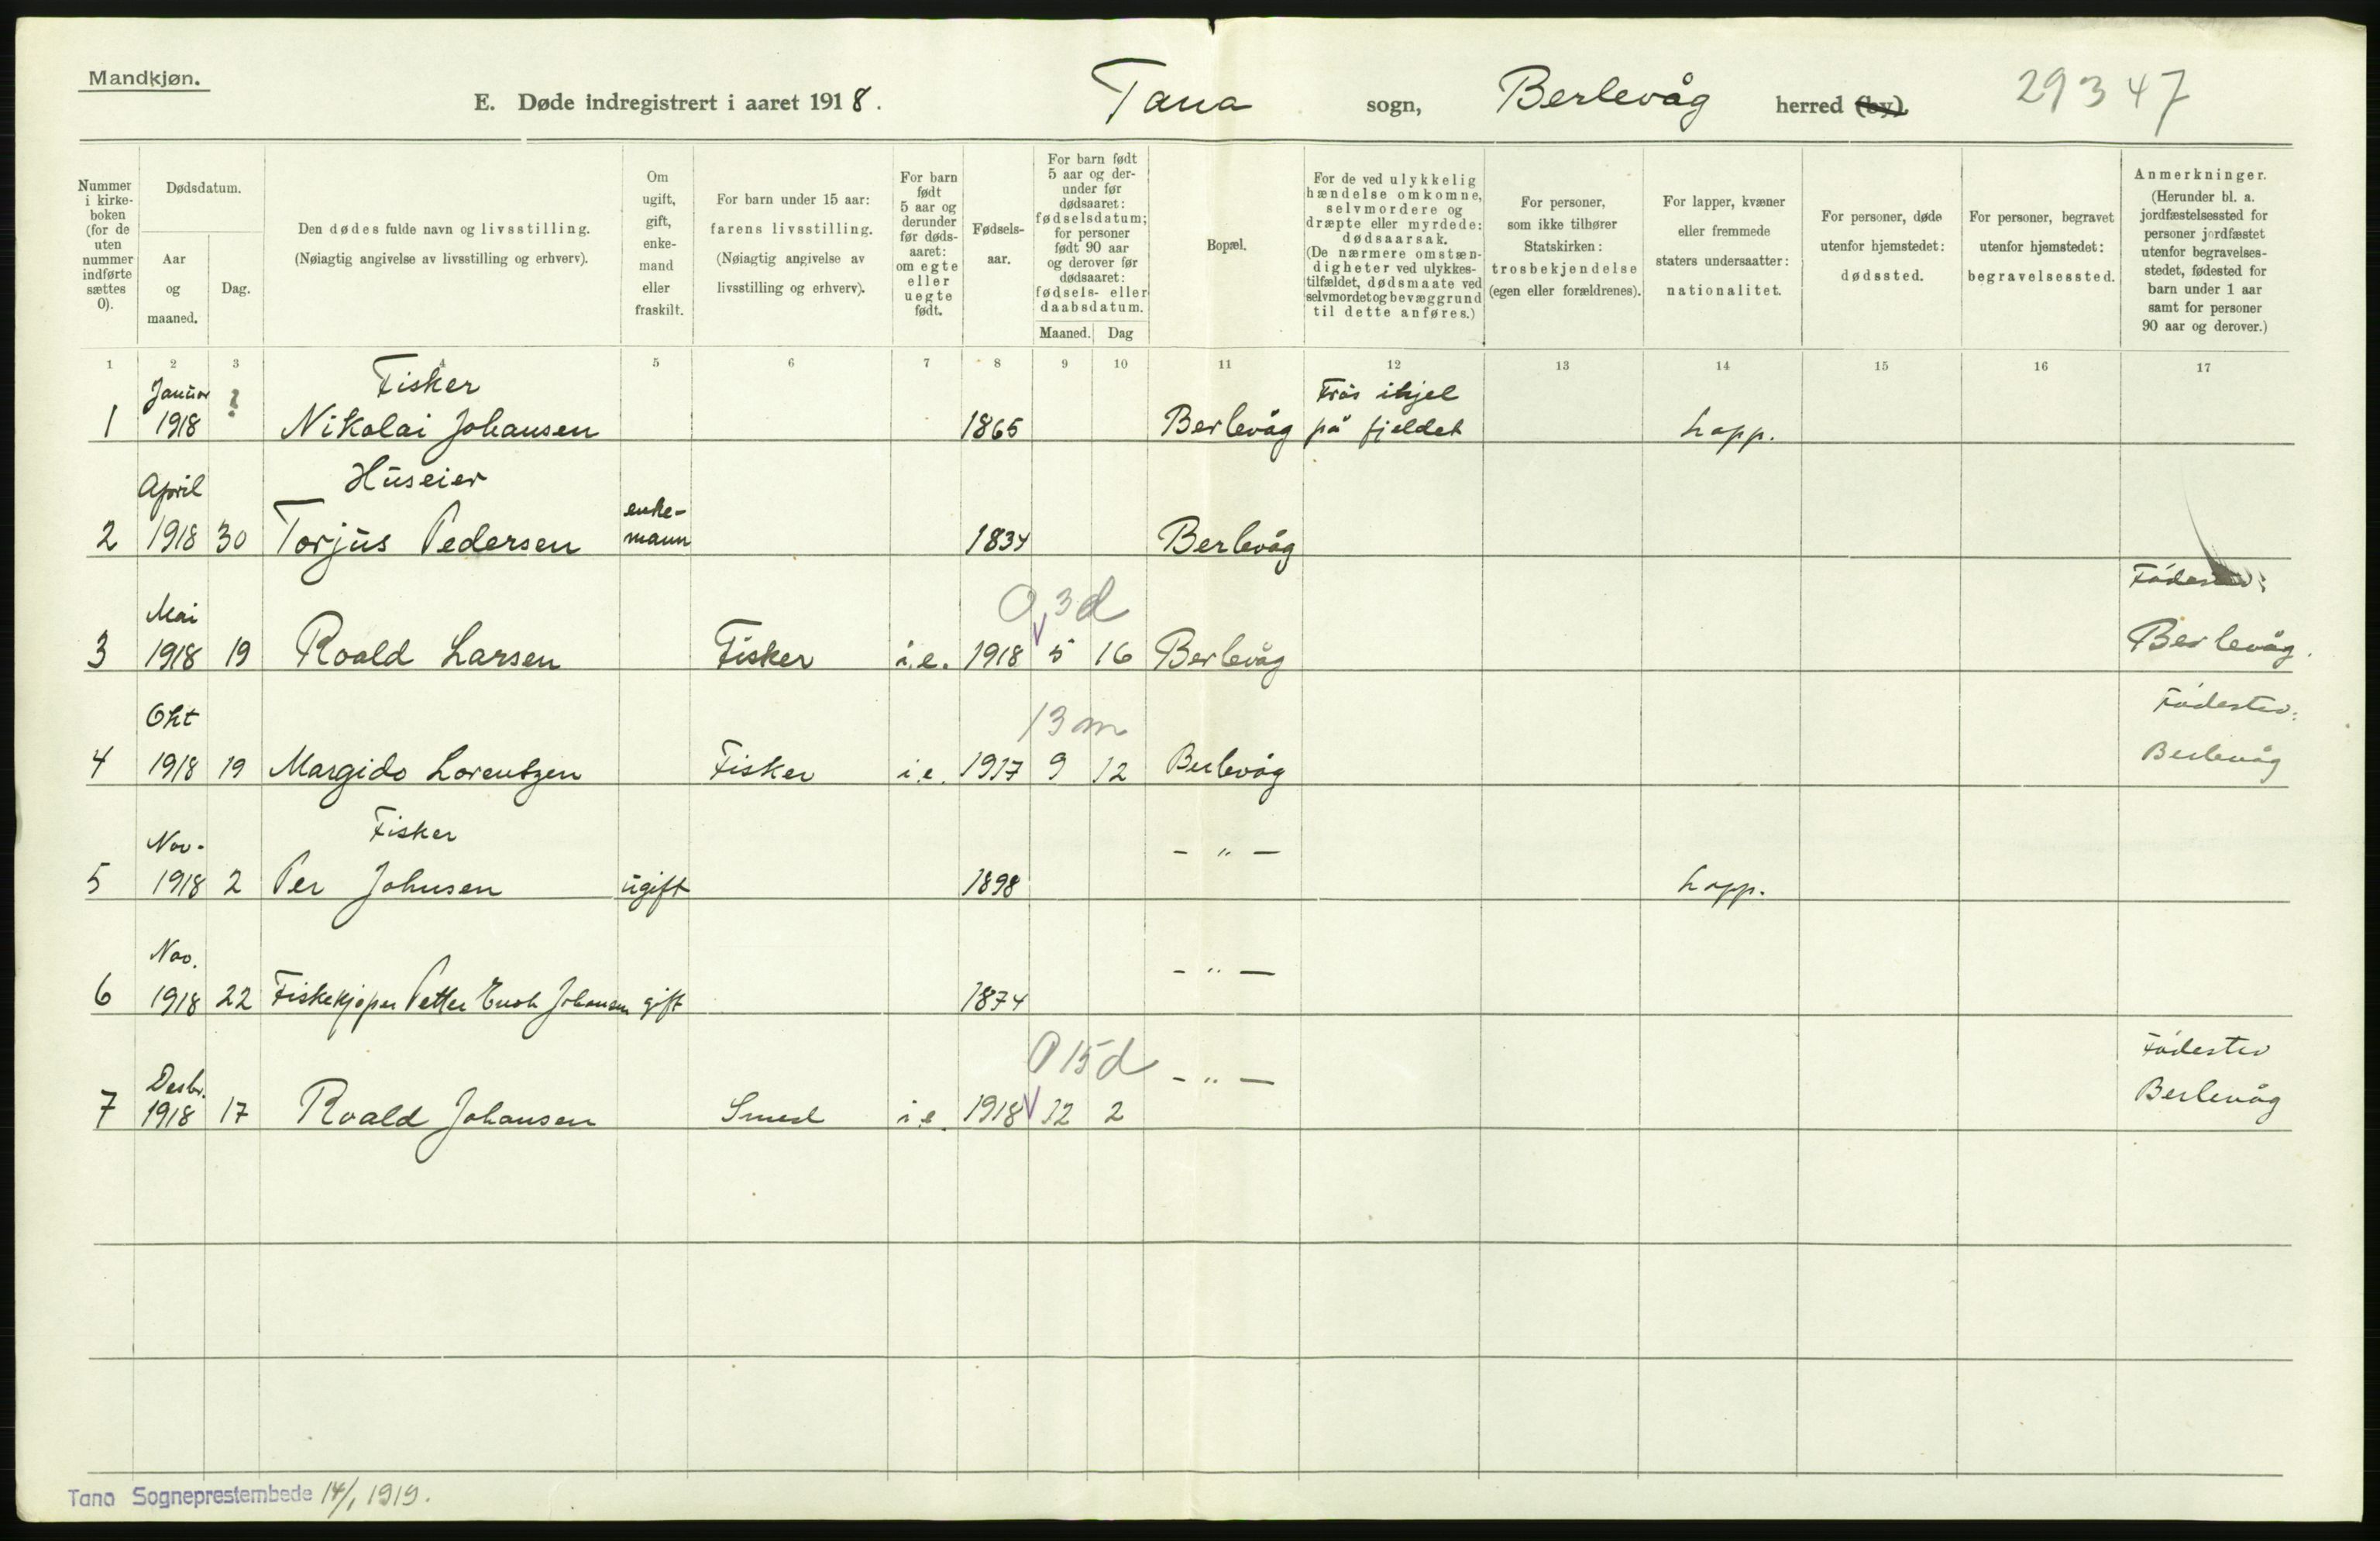 Mandkjøn.
E. Døde indregistrert i aaret 1918. Tana sogn, Berlevåg herred (by). 29347
Nummer i kirke-boken (for de uten nummer indførte sættes 0).
Dødsdatum.
Aar og maaned.
Dag.
Den dødes fulde navn og livsstilling.
(Nøiagtig angivelse av livsstilling og erhverv).
Om ugift, gift, enke-mand eller fraskilt.
For barn under 15 aar: farens livsstilling.
(Nøiagtig angivelse av livsstilling og erhverv).
For barn født 5 aar og derunder før døds-aaret: om egte eller uegte født.
Fødsels-aar.
For barn født 5 aar og der-under før dødsaaret: fødselsdatum; for personer født 90 aar og derover før dødsaaret: fødsels- eller daabsdatum.
Maaned. Dag
Bopæl.
For de ved ulykkelig hændelse omkomne, selvmordere og dræpte eller myrdede: dødsaarsak.
(De nærmere omstæn-digheter ved ulykkes-tilfældet, dødsmaate ved selvmordet og bevæggrund til dette anføres.)
For personer, som ikke tilhører Statskirken: trosbekjendelse (egen eller forældrenes).
For lapper, kvæner eller fremmede staters undersaatter: nationalitet.
For personer, døde utenfor hjemstedet: dødssted.
For personer, begravet utenfor hjemstedet: begravelsessted.
Anmerkninger.
(Herunder bl. a. jordfæstelsessted for personer jordfæstet utenfor begravelses-stedet, fødested for barn under 1 aar samt for personer 90 aar og derover.)
1 2 3 4 5 6 7 8 9 10 11 12 13 14 15 16 17
Januar ? Fisker Frøs ihjel
1 1918 Nikolai Johansen 1865 Berlevåg på fjeldet Lapp.
April Huseier enke-
2 1918 30 Torjus Pedersen mann 1834 Berlevåg
Mai 0,3d
3 1918 19 Roald Larsen Fisker i.e. 1918 5 16 Berlevåg Berlevåg.
Okt 13m Fødested:
4 1918 19 Margido Lorentzen Fisker i.e. 1917 9 12 Berlevåg Berlevåg
Nov. Fisker - " -
5 1918 2 Per Johnsen ugift 1898 Lapp.
Nov. - " -
6 1918 22 Fiskekjøper Petter Johansen gift 1874
Desbr. 0 15d - " - Fødested
7 1918 17 Roald Johansen Smed i.e. 1918 12 2 Berlevåg
Tana Sogneprestembede 14/1 1919.